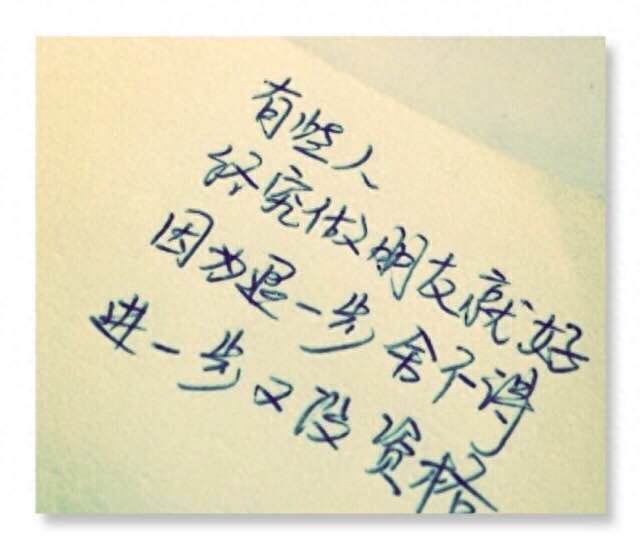 有些人
终究做朋友就好
因为退一步舍不得
进一步又没资格